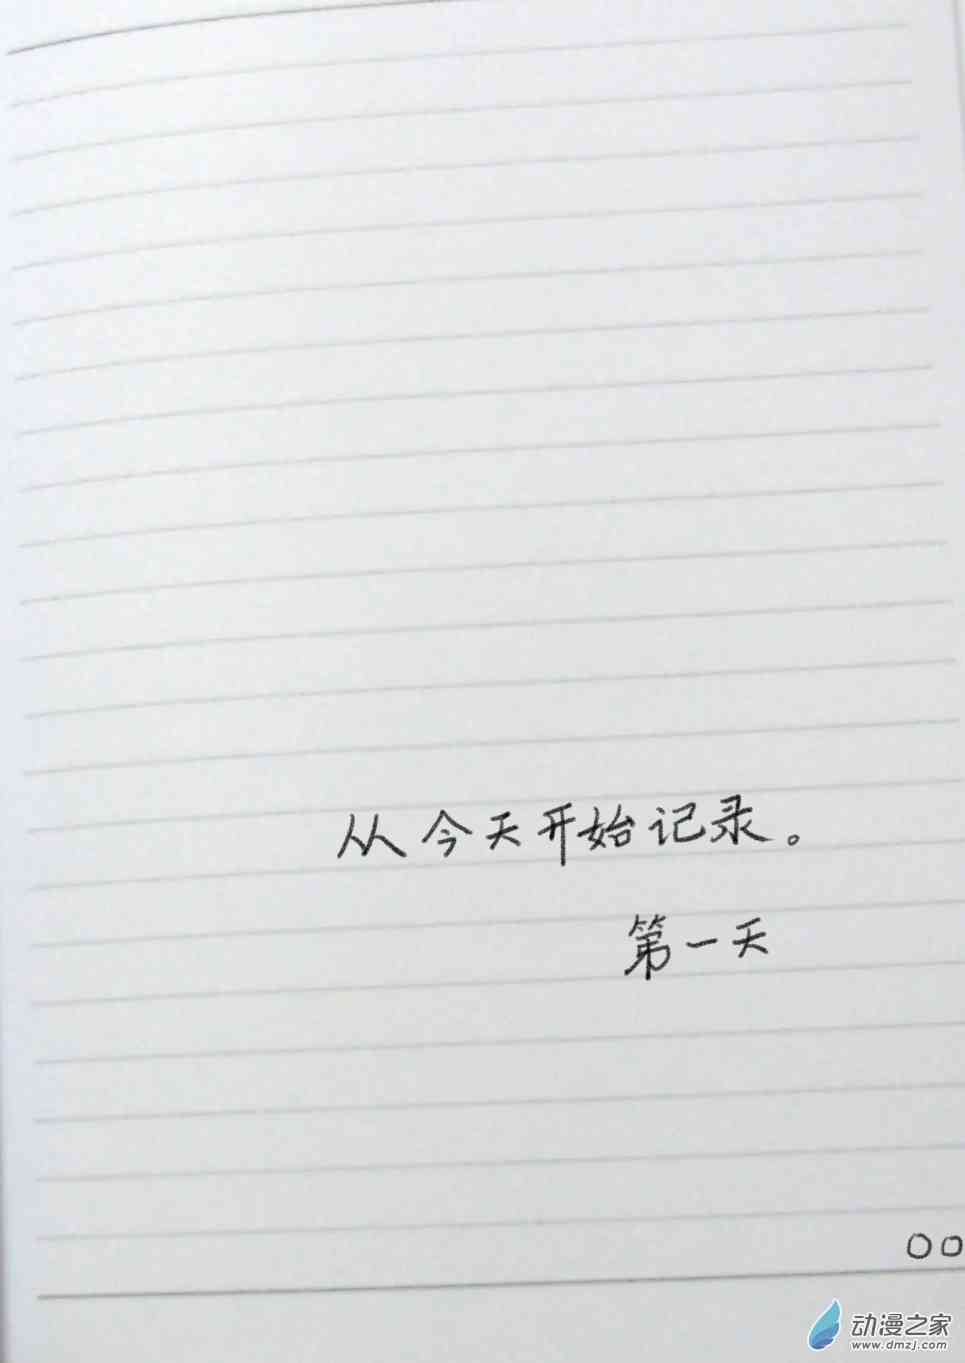 从今天开始记录。
第一天
00
动漫之家
www.dmzj.com